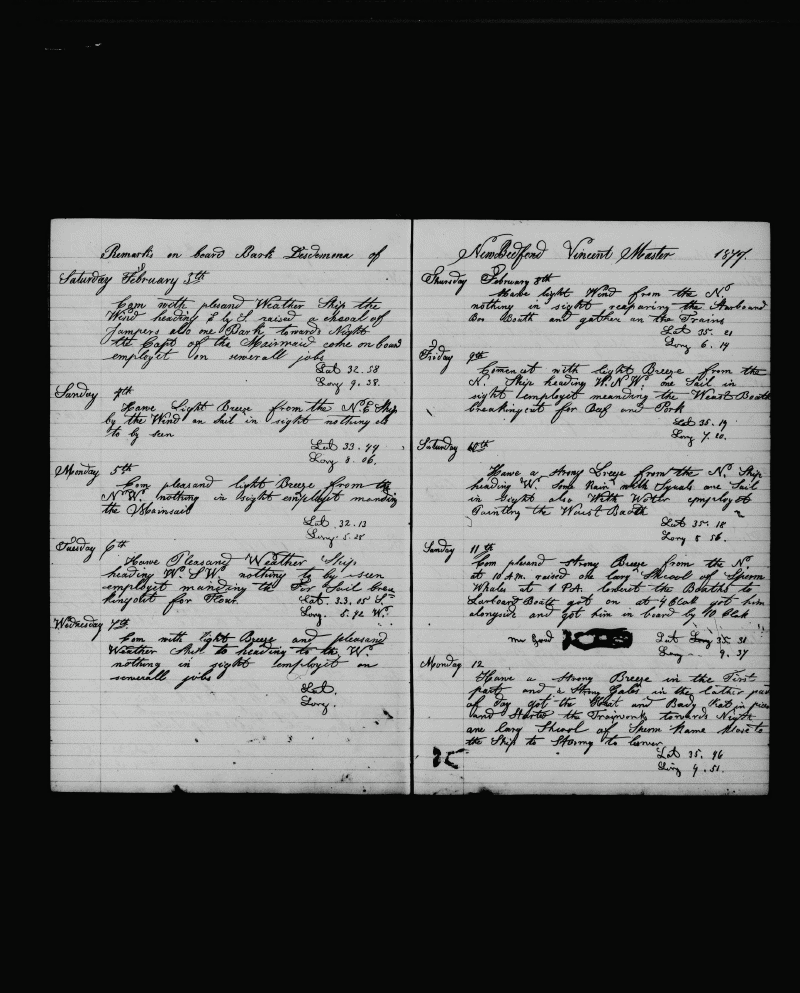 Remarks on board Bark Desdemona of
Saturday February 3th
Com with plesand Weather Ship the
Wind heading S by E raised a shoal of
Jumpers also one Bark, towards Night
the Capt of the Mairmaid come on board
employet on sewerall jobs
Lat 32.58
Long 9.38.
Sunday 4th
Hawe Light Breeze from the N.E. Ship
by the Wind on Sail in sight nothing els
to by seen
Lat 33.44
Long 8.06.
Monday 5th
Com pleasand light Breeze from the
N W. nothing in sight employet manding
the Mainsail
Lat 32.13
Long 5.28
Tuesday 6th
Hawe Pleasand Weather Ship
heading W.S.W. nothing to by seen
employet manding the For Sail brea
kingout for Flour. Lat. 33.15 S
Long. 5.42 W.
Wednesday 7th
Com with light Breeze and pleasand
Weather Ship to heading to the W.
nothing in sight employet on
sewerall jobs
Lat.
Long.
New Bedfend Vincent Master 1877.
Thursday February 8th
Hawe light Wind from the N.
nothing in sight reaparing the Starboard
Bow Boath and gather on the Trains
Lat 35.21
Long 6.19
Friday 9th
Comencit with light Breeze from the
N. Ship heading W.N.W. one Sail in
sight employet meanding the Weast Boath
breakingout for Beef and Pork
Lat 35.19
Long 7.20.
Saturday 10th
Hawe a strong Breeze from the N. Ship
heading W. Som Rain with Squals one Sail
in Sight also With Woter employet
Painting the Waist Boath
Lat 35.18
Long 8 56.
Sunday 11th
Com plesand strong Breeze from the N.
at 10 A.m. raised one larg Skreol of Sperm
Whales at 1 P.A. loweret the Boaths to
Larboard Boate got on at 4 Clok got him
alongside and got him in board by 10 Clok
Lat Long 35.31
Long 9.37
Monday 12
Hawe a strong Breeze in the First
parts and a Strong Gales in the lather part
of Day got the Heat and Body Kat in pices
and Startet the Traiwork towards Night
one larg Skreol of Sperm kame Klose to
the Ship to Stormy to lower
Lat 35.46
Long 9.51.